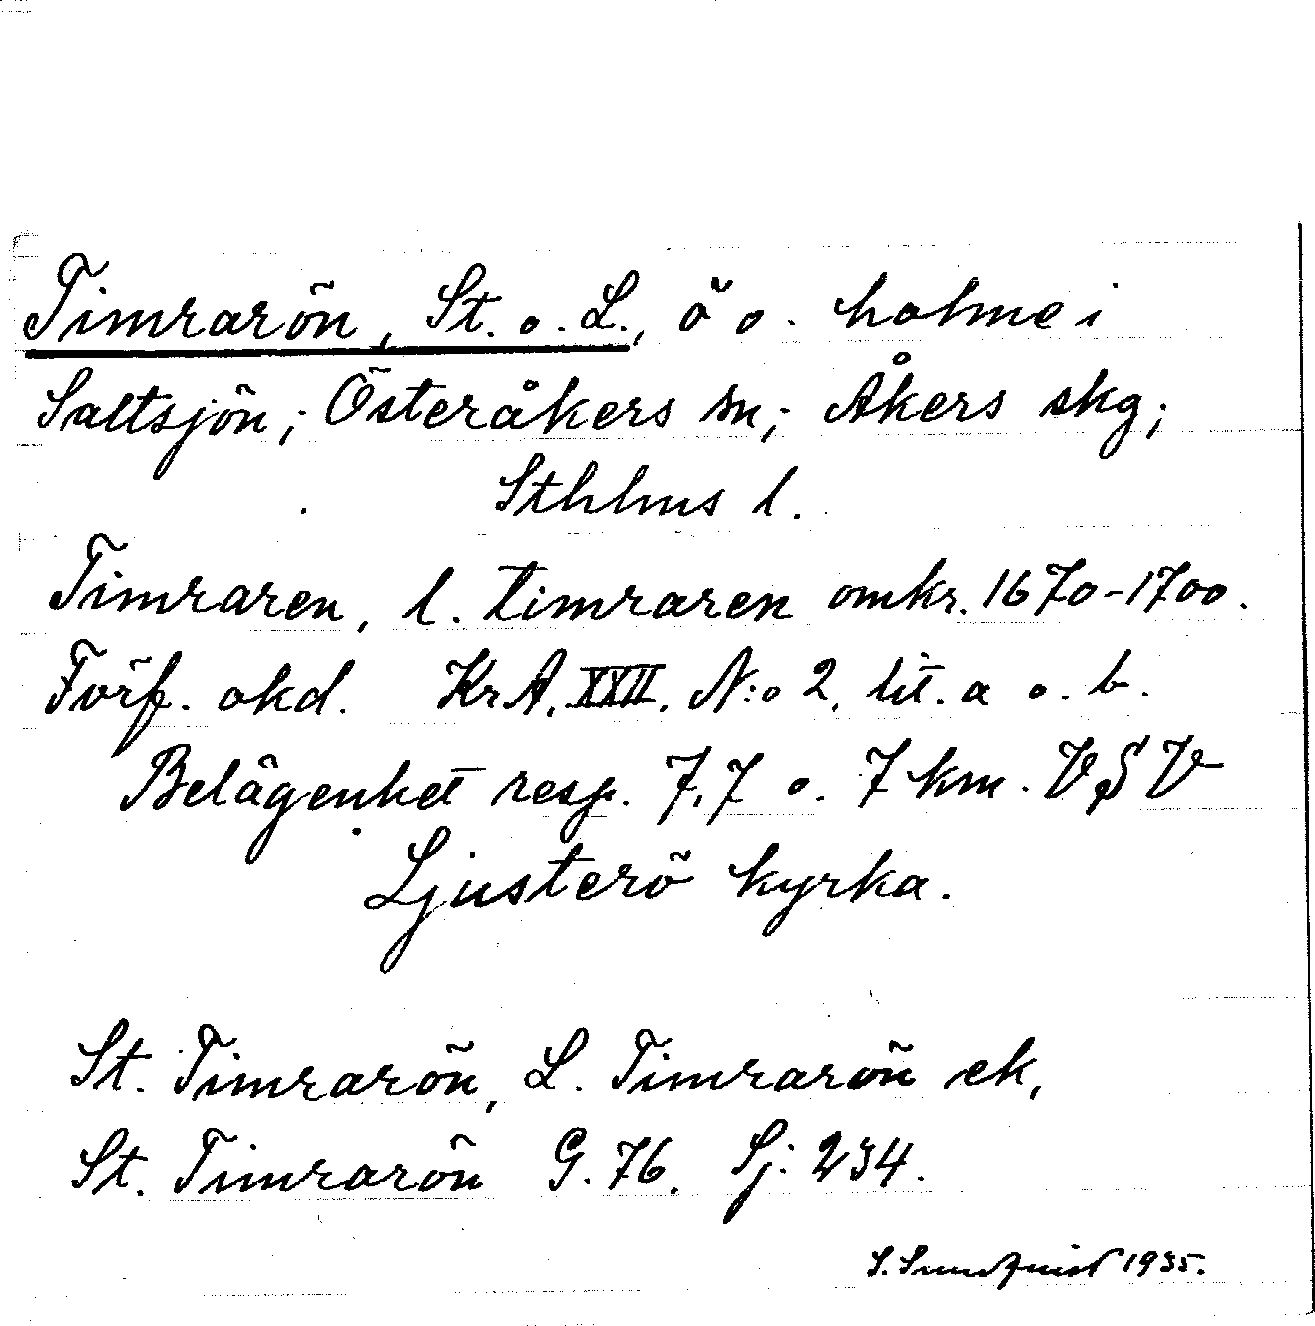 Timrarön, St. o. L., ö o. holme i
Saltsjön; Österåkers sn; Åkers skg;
Sthlms l.
Timraren, l. timraren omkr. 1670-1700.
Förf. okd. KrA. XXII. N:o 2. lit. a o. b.
Belägenhet resp. 7,7 o. 7 km. VSV
Ljusterö kyrka.
St. Timrarön, L. Timrarön ek,
St. Timrarön G. 76. Sj: 234.
S. Sundquist 1935.